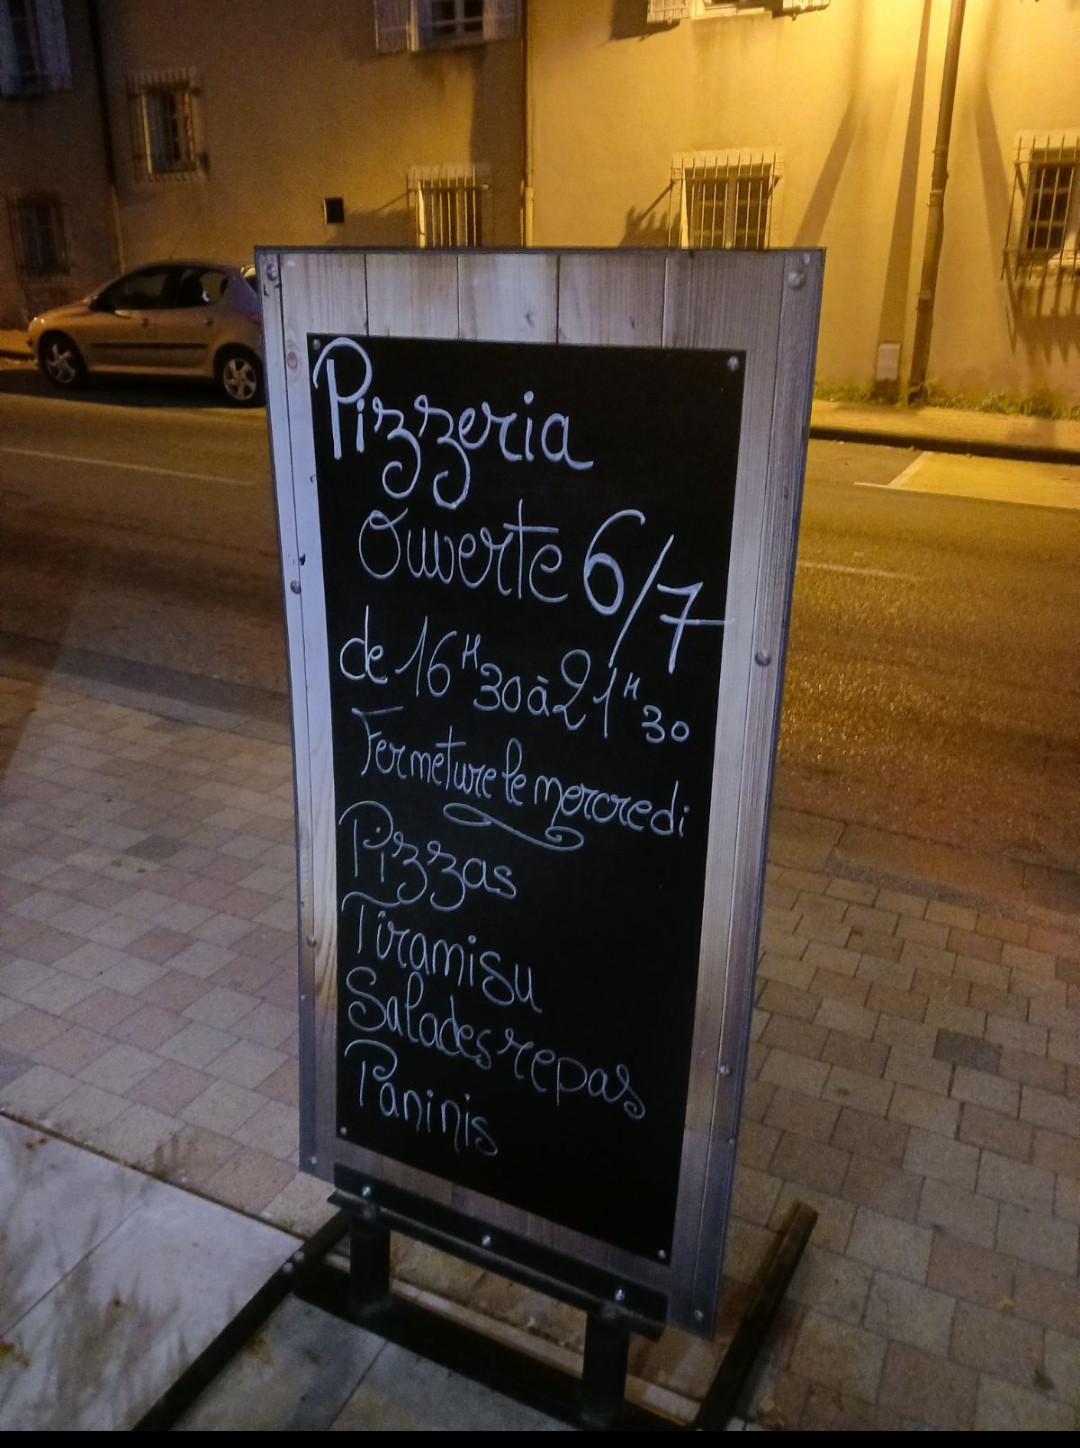 Pizzeria
Ouverte 6/7
de 16H30 à 21H30
Fermeture le mercredi
Pizzas
Tiramisu
Salades repas
Paninis